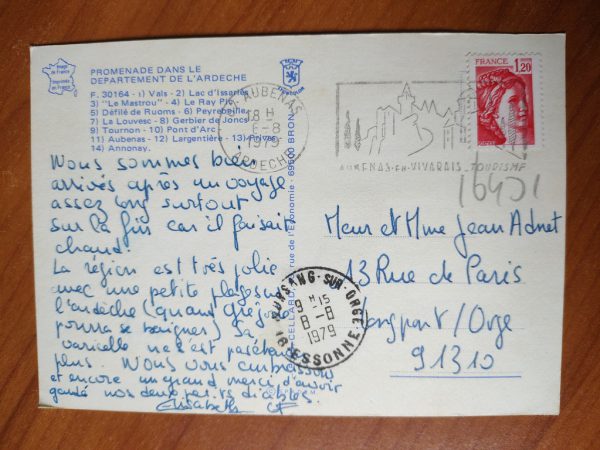 PROMENADE DANS LE
DEPARTEMENT DE L'ARDECHE
F. 30164 - 1) Vals - 2) Lac d'Issarlès
3) "Le Mastrou" - 4) Le Ray Pic
5) Défilé de Ruoms - 6) Peyrebeille
7) La Louvesc - 8) Gerbier de Joncs
9) Tournon - 10) Pont d'Arc
11) Aubenas - 12) Largentière - 13) Privas
14) Annonay.
Nous sommes bien
arrivés après un voyage
assez long surtout
sur la fin car il faisait
chaud.
La région est très jolie
avec une petite plage sur
l'ardèche (quand
pourra se baigner) Sa
varicelle ne s'est
plus. Nous vous embrassons
et encore un grand merci d'avoir
gardé nos deux diables.
Elisabeth
rue de l'Economie - 69500 BRON
CELLARD
AUBENAS
18 H
1979
ARDECHE
AUBENAS-EN-VIVARAIS TOURISME
FRANCE
1,20
16401
Meur et Mme Jean Adnet
13 Rue de Paris
Longpont/Orge
91310
MORSANG-SUR-ORGE
9 H 15
8-8
1979
91 ESSONNE